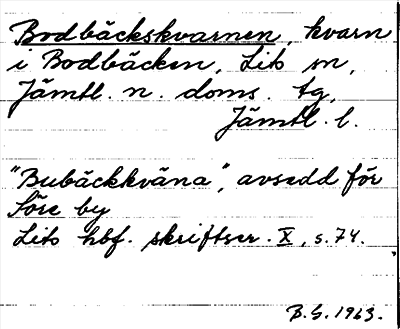 Bodbäckskvarnen, kvarn
i Bodbäcken, Lits sn,
Jämtl. n. doms. tg,
Jämtl. l.
"Bubäckkväna", avsedd för
Söre by
Lits hbf. skriftser. X, s. 74.
B.G. 1963.